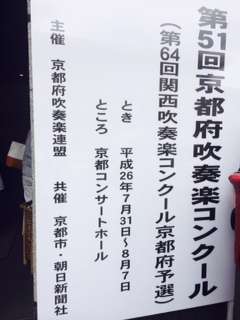 第51回京都府吹奏楽コンクール
（第64回関西吹奏楽コンクール京都府予選）
とき　平成26年7月31日〜8月7日
ところ　京都コンサートホール
主催　京都府吹奏楽連盟　共催　京都市・朝日新聞社